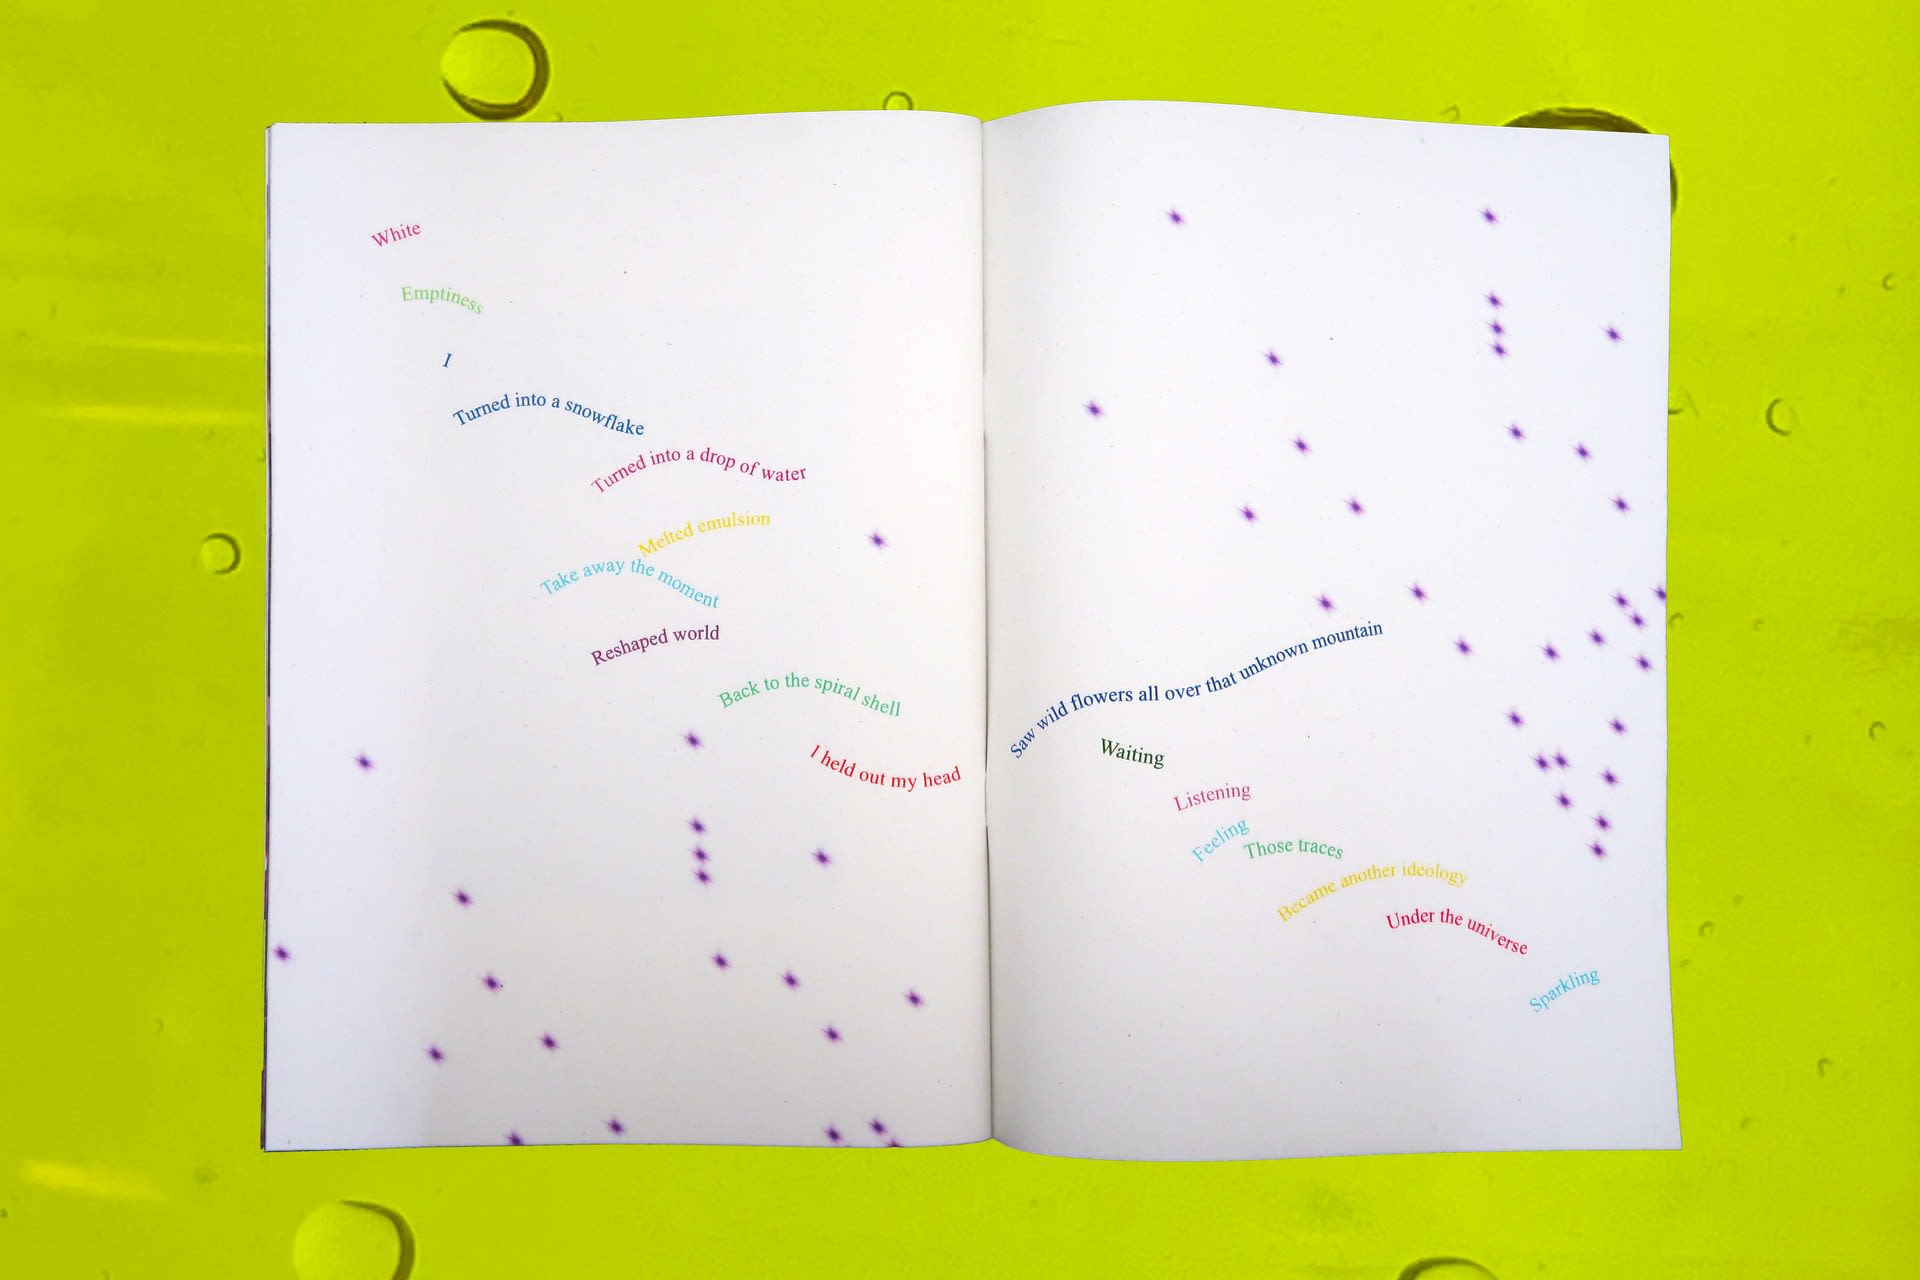 White
Emptiness
I
Turned into a snowflake
Turned into a drop of water
Melted emulsion
Take away the moment
Reshaped world
Back to the spiral shell
I held out my head
Saw wild flowers all over that unknown mountain
Waiting
Listening
Feeling
Those traces
Became another ideology
Under the universe
Sparkling